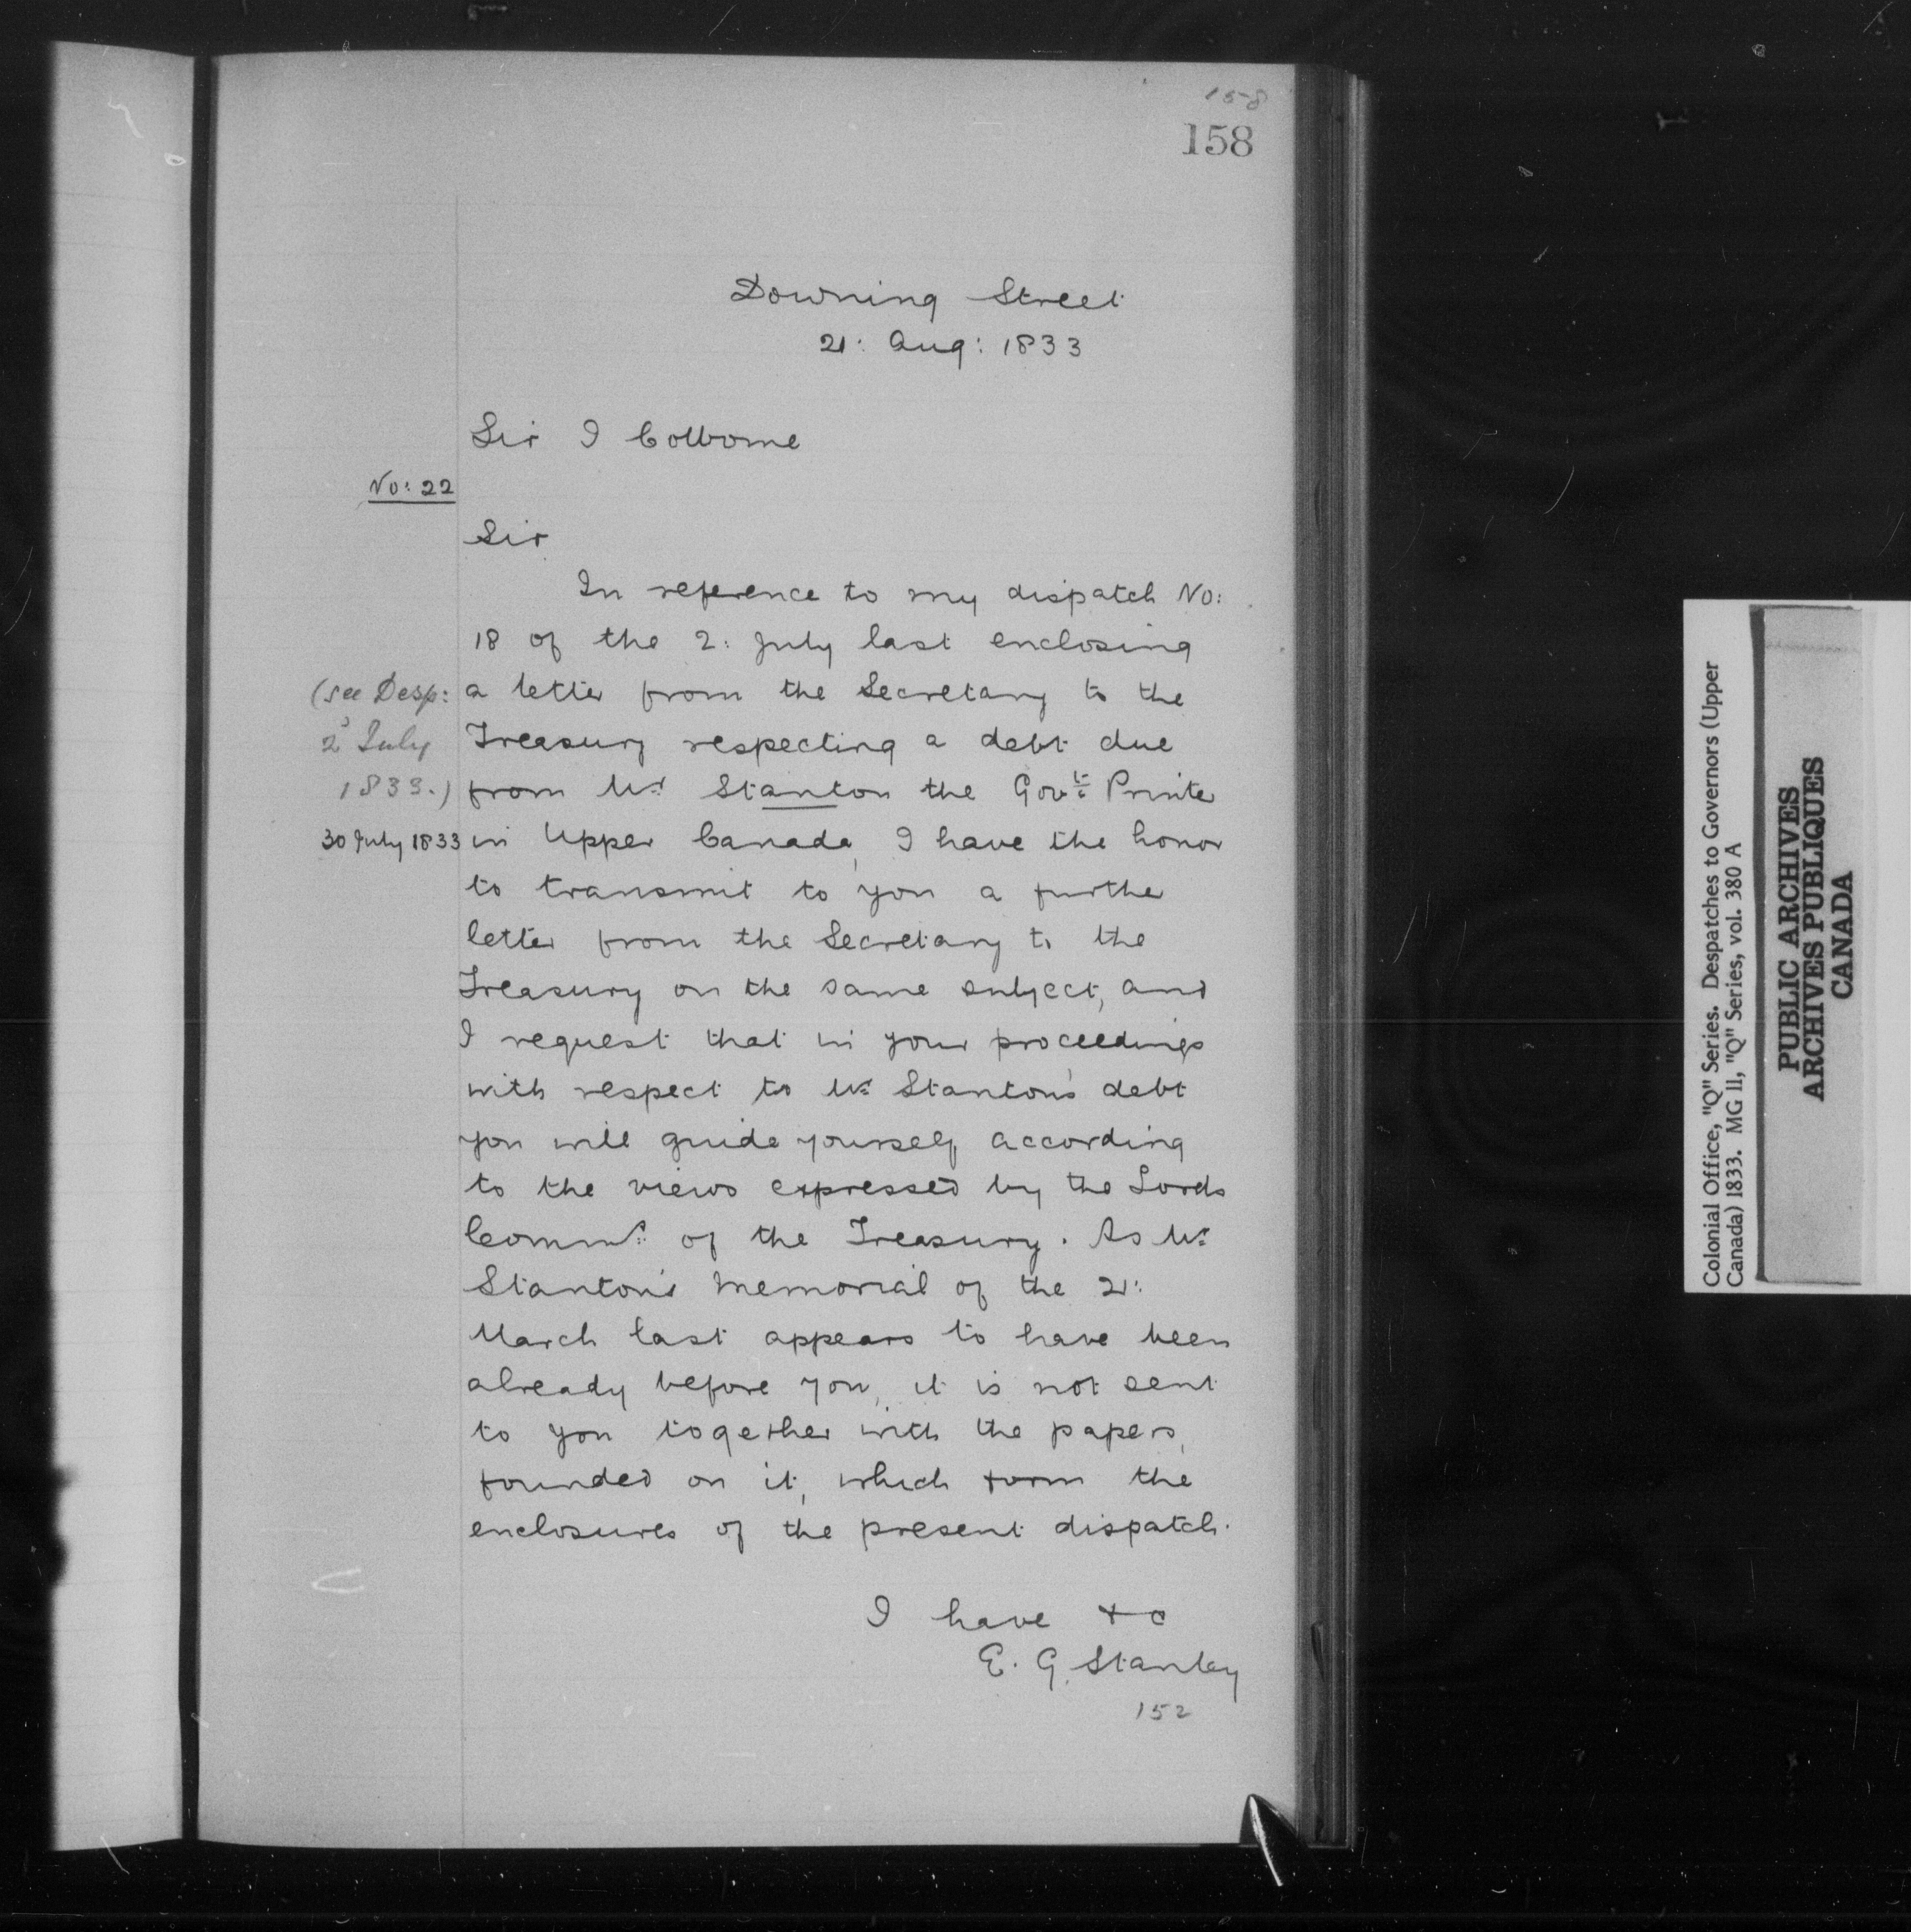 158
158
Downing Street
21: Aug: 1833
Sir J Colborne
No: 22
Sir
In reference to my dispatch No:
18 of the 2: July last enclosing
a letter from the Secretary to the
Treasury respecting a debt due
from Mr Stanton the Govt: Printer
in Upper Canada, I have the honor
to transmit to you a further
letter from the Secretary to the
Treasury on the same subject, and
I request that in your proceedings
with respect to Mr: Stanton's debt
you will guide yourself according
to the views expressed by the Lords
Commrs: of the Treasury. As Mr:
Stanton's Memorial of the 21:
March last appears to have been
already before you, it is not sent
to you together with the papers,
founded on it, which form the
enclosures of the present dispatch.
I have &c
E. G. Stanley
152
(see Desp:
2d July
1833.)
30 July 1833
Colonial Office, "Q" Series. Despatches to Governors (Upper
Canada) 1833. MG 11, "Q" Series, vol. 380 A
PUBLIC ARCHIVES
ARCHIVES PUBLIQUES
CANADA